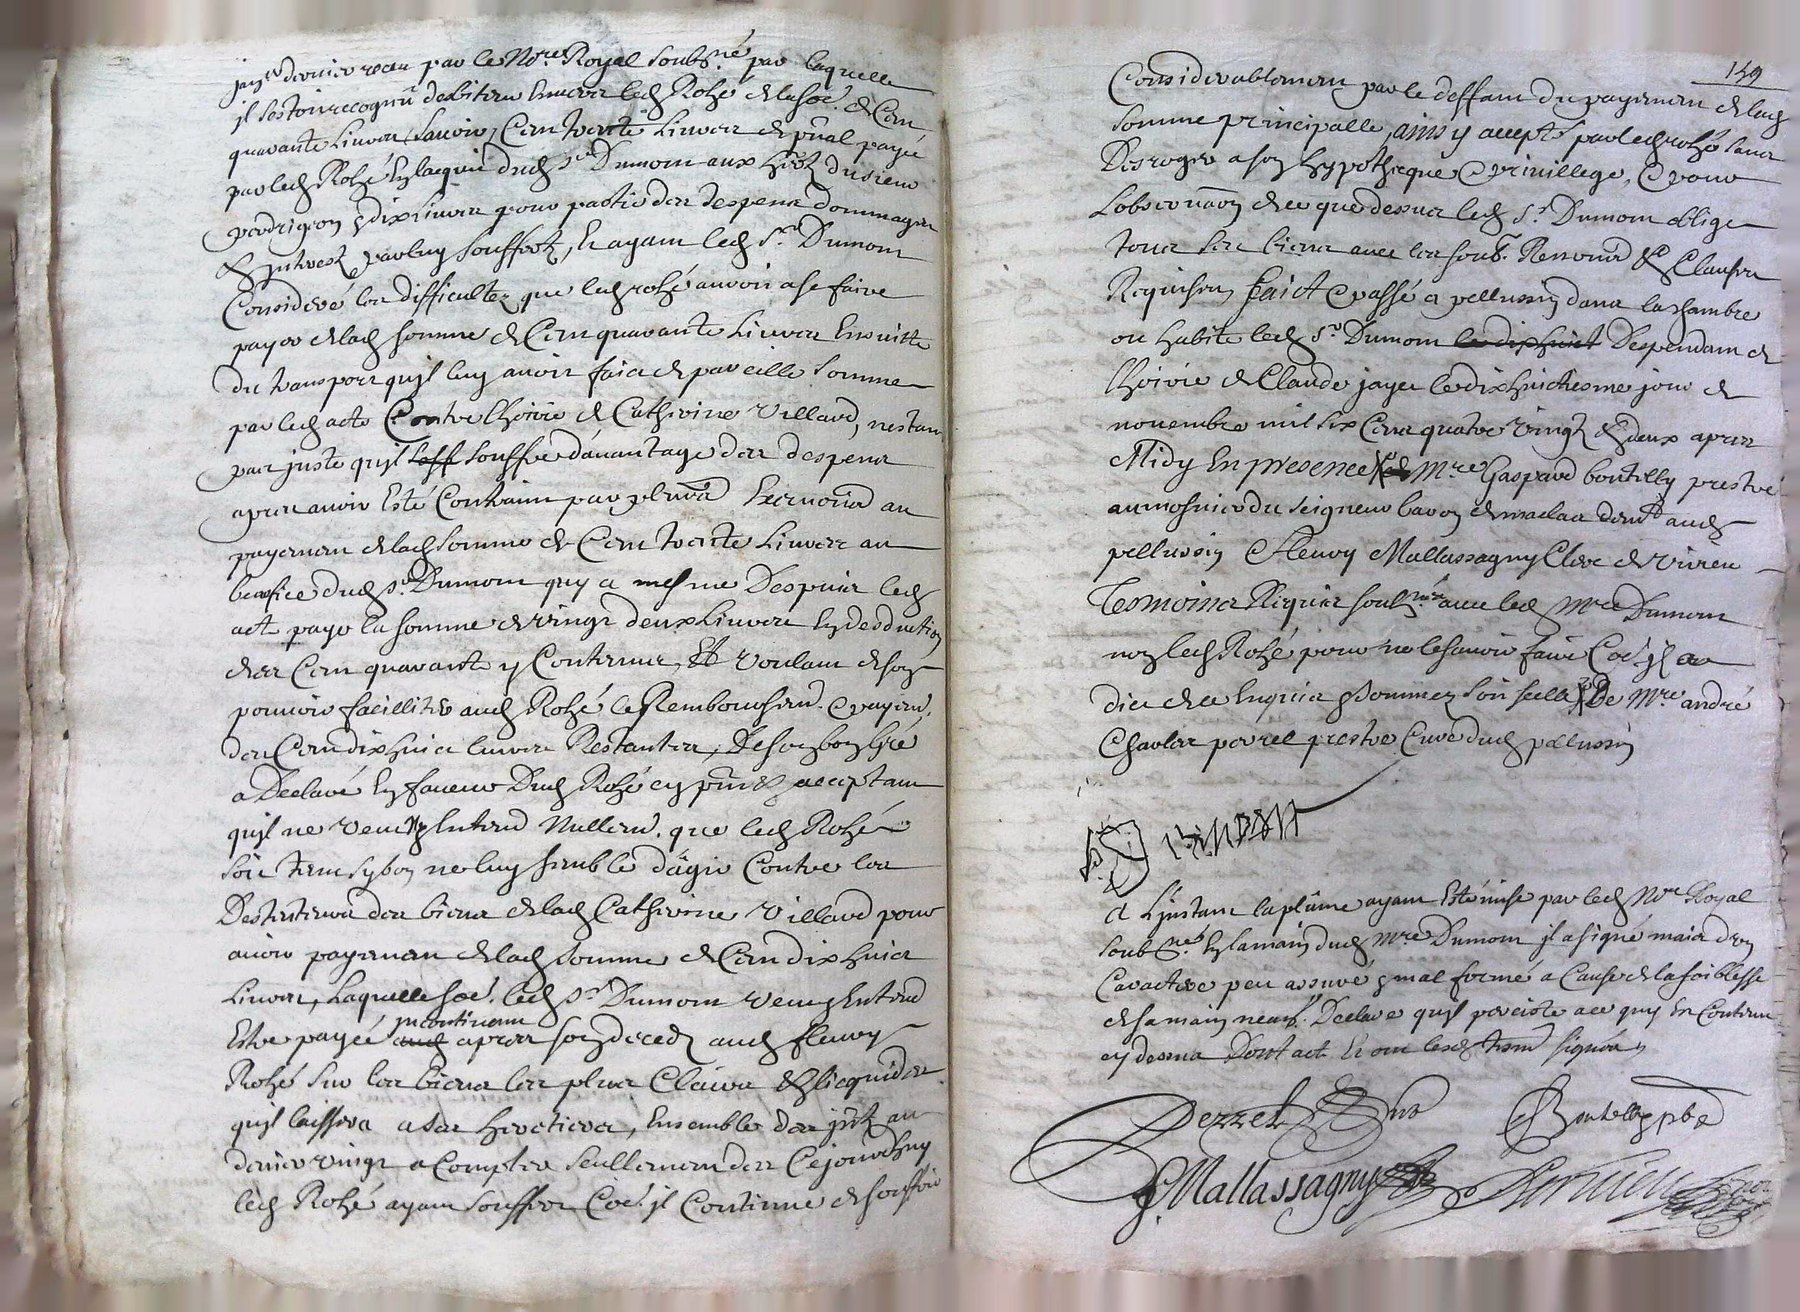 janv.er dernier receu par le No.re Royal soubs.né par laquelle
il sestoit recognu debiteur envers led Rozé de la so.e de Cent
quarante Livres, scavoir, Cent trente Livres de p.nal payée
par led Rozé En lacquit dud s.r Dumont aux h.rs du sieur
perdrigeon & dix Livres pour partie des despens dommages
& interests par luy soufferts, Et ayant led S.r Dumont
Consideré les difficultez que led rozé auroit a se faire
payer de lad somme de Cent quarante Livres Ensuitte
du transport quil luy auroit faict de pareille somme
par led acte Contre lhoirie de Catherine Villard, nestant
pas juste quil soff souffre davantage des despens
apres avoir Esté Contraint par plus.rs au
payement de lad somme de Cent trente Livres au
benefice dud s.r Dumont quy a mesme Despuis led
act payé la somme de vingt deux Livres En desduction
des Cent quarante y Contenus, Et voulant de soy
pouvoir facilliter aud Rozé le Rembourssem.t & payem.t
des Cent dix huict livres Restantes, De son bon gré
a Declaré En faveur Dud Rozé cy p.nt & acceptant
quil ne veut & Entend Nullem.t que led Rozé
soit tenu sy bon ne luy semble dágir Contre les
Destenteurs des biens de lad Catherine Villard pour
avoir payement de lad somme de Cent dix huict
Livres, Laquelle so.e led S.r Dumont veut & Entend
Estre payée aud incontinant apres son deceds aud fleury
Rozé sur les biens les plus Claires & licquides
quil laissera a ses heretiers, Ensemble des int.s au
denier vingt a Compter seullement des Cejourdhuy
led Rozé ayant souffert Co.e il Continue de souffrir
159
Considerablement par le deffaut du payement de lad
somme principalle, ainsy accepté par led rozé sans
Desroger a son hypotheque & privillege, & pour
Lobservaon de ce que dessus led S.r Dumont oblige
tous ses biens avec les soub.s Renon.s & Clauses
Requises, faict & passé a pellussin dans la chambre
ou habite led S.r Dumont le dix huict Despendant de
lhoirie de Claude jayet le dix huictiesme jour de
novembre mil six Cens quatre vingt & deux apres
Midy En presence de M.re Gaspard boutilly prestre
aumosnier du seigneur baron de malas dem.t aud
pellussin & fleury Mallassagny Clerc de virieu
Tesmoins Requis soub.nés avec led M.re Dumont
non led Rozé pour ne le scavoir faire Co.e il a
dict de ce Enquis & sommez soit seelle De M.re andré
Chavlas perrel prestre Curé dud pellussin
DVMONT
A Linstant la plume ayant Esté mise par led No.re Royal
soub.né En la main dud M.re Dumont il a signé mais d'un
Caractere peu assuré & mal formé a Cause de la foiblesse
de sa main neanm.s Declare quil perciste a ce quy Est Contenu
cy dessus Dont act Et ont lesd tesm.s signés
Perrel Curé
Boutilly pbre
F. Mallassagny